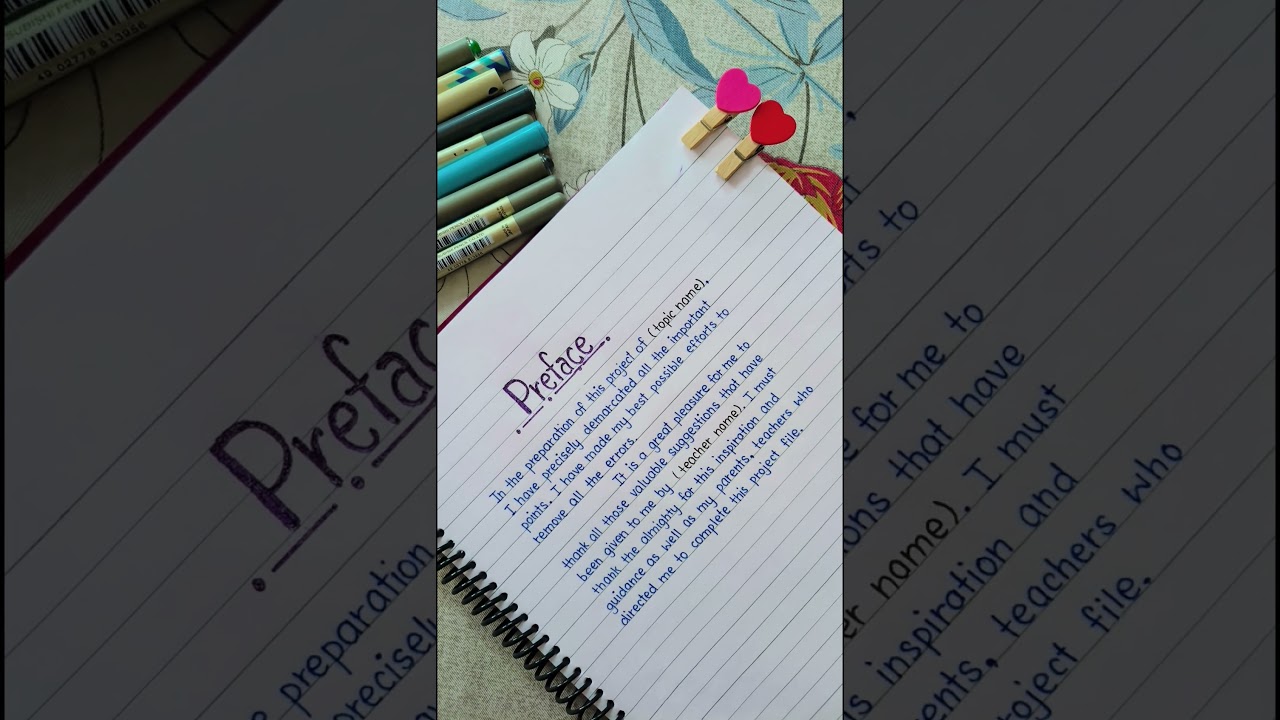 Preface
In the preparation of this project of (topic name),
I have precisely demarcated all the important
points. I have made my best possible efforts to
remove all the errors.
It is a great pleasure for me to
thank all those valuable suggestions that have
been given to me by (teacher name). I must
thank the almighty for this inspiration and
guidance as well as my parents, teachers who
directed me to complete this project file.